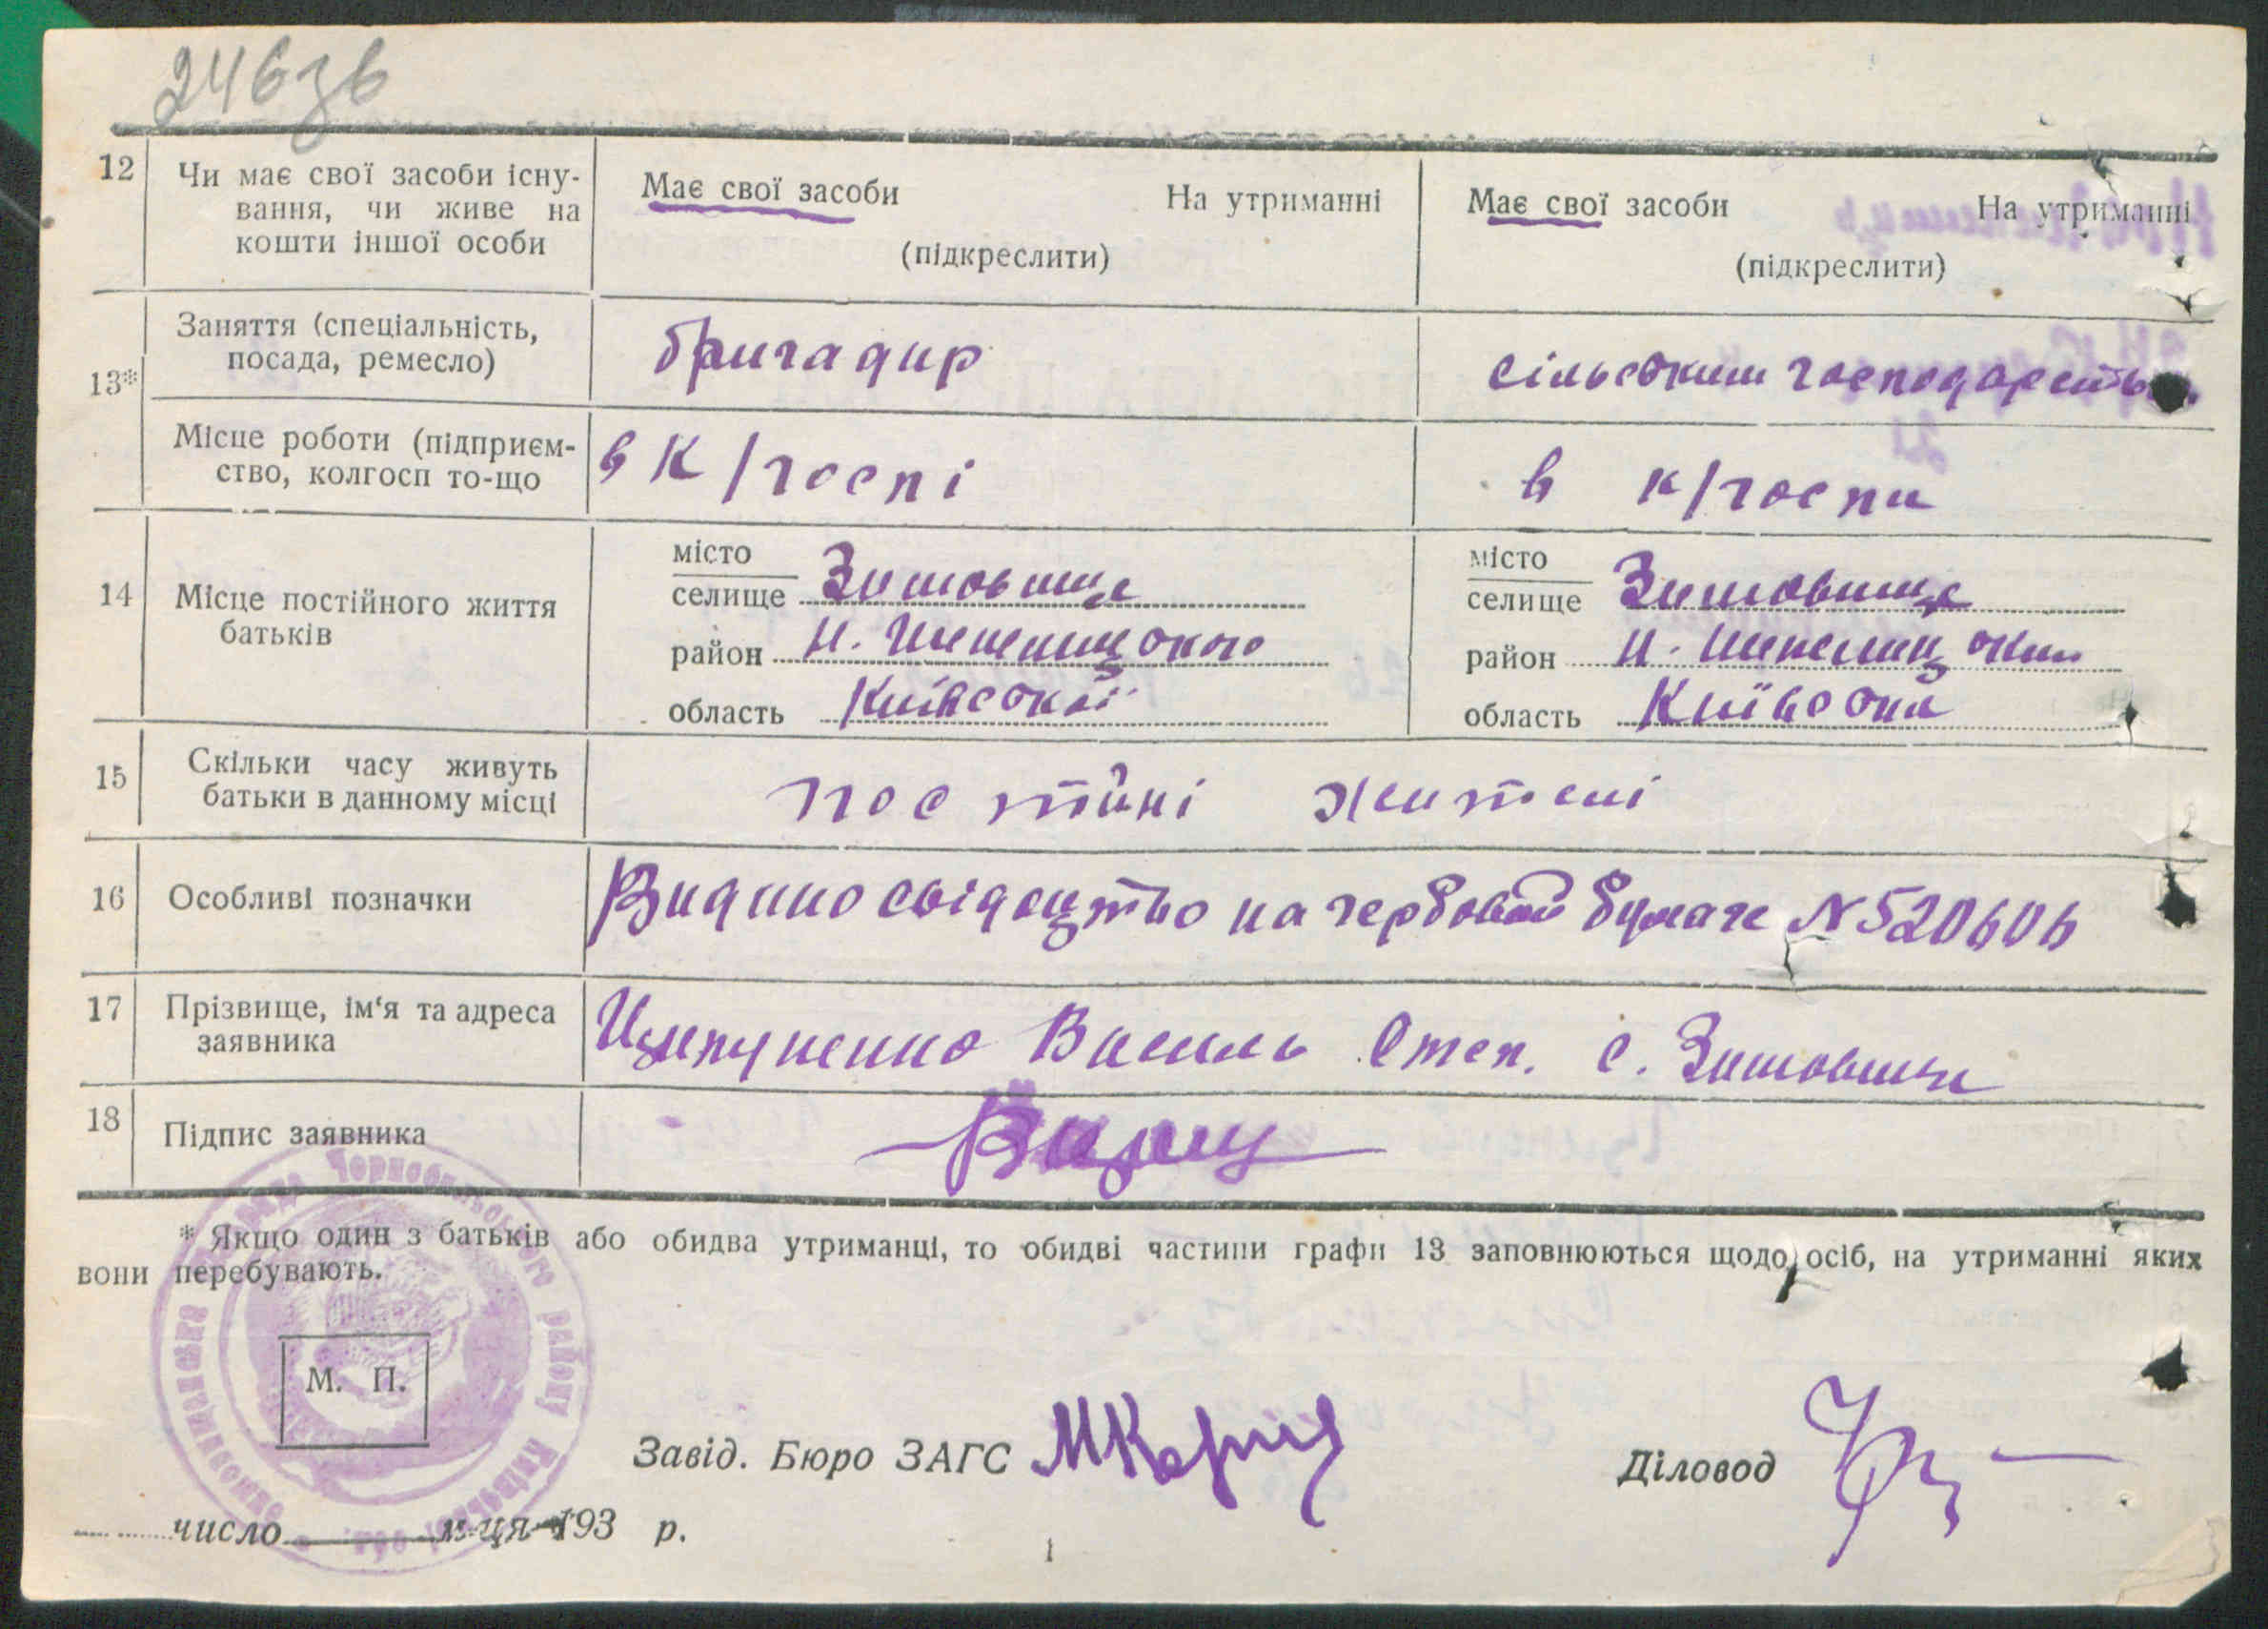 246зв
12
Чи має свої засоби існу-
вання, чи живе на
кошти іншої особи
Має свої засоби
На утриманні
(підкреслити)
Має свої засоби
На утриманні
(підкреслити)
13*
Заняття (спеціальність,
посада, ремесло)
бригадир
сільським господарств
Місце роботи (підприєм-
ство, колгосп то-що
в к/госпі
в к/госпи
14
Місце постійного життя
батьків
місто
селище Зимовище
район Н. Шепелицького
область Київської
місто
селище Зимовище
район Н. Шепелицьким
область Київська
15
Скільки часу живуть
батьки в данному місці
постійні жителі
16
Особливі позначки
Видано свідоцтво на гербовой бумаге № 520606
17
Прізвище, ім‘я та адреса
заявника
Василь Степ. с. Зимовище
18
Підпис заявника
* Якщо один з батьків або обидва утриманці, то обидві частини графи 13 заповнюються щодо осіб, на утриманні яких
вони перебувають.
Чорнобильського району Київської обл.
М. П.
Завід. Бюро ЗАГС
Діловод
число м-ця 193 р.
1